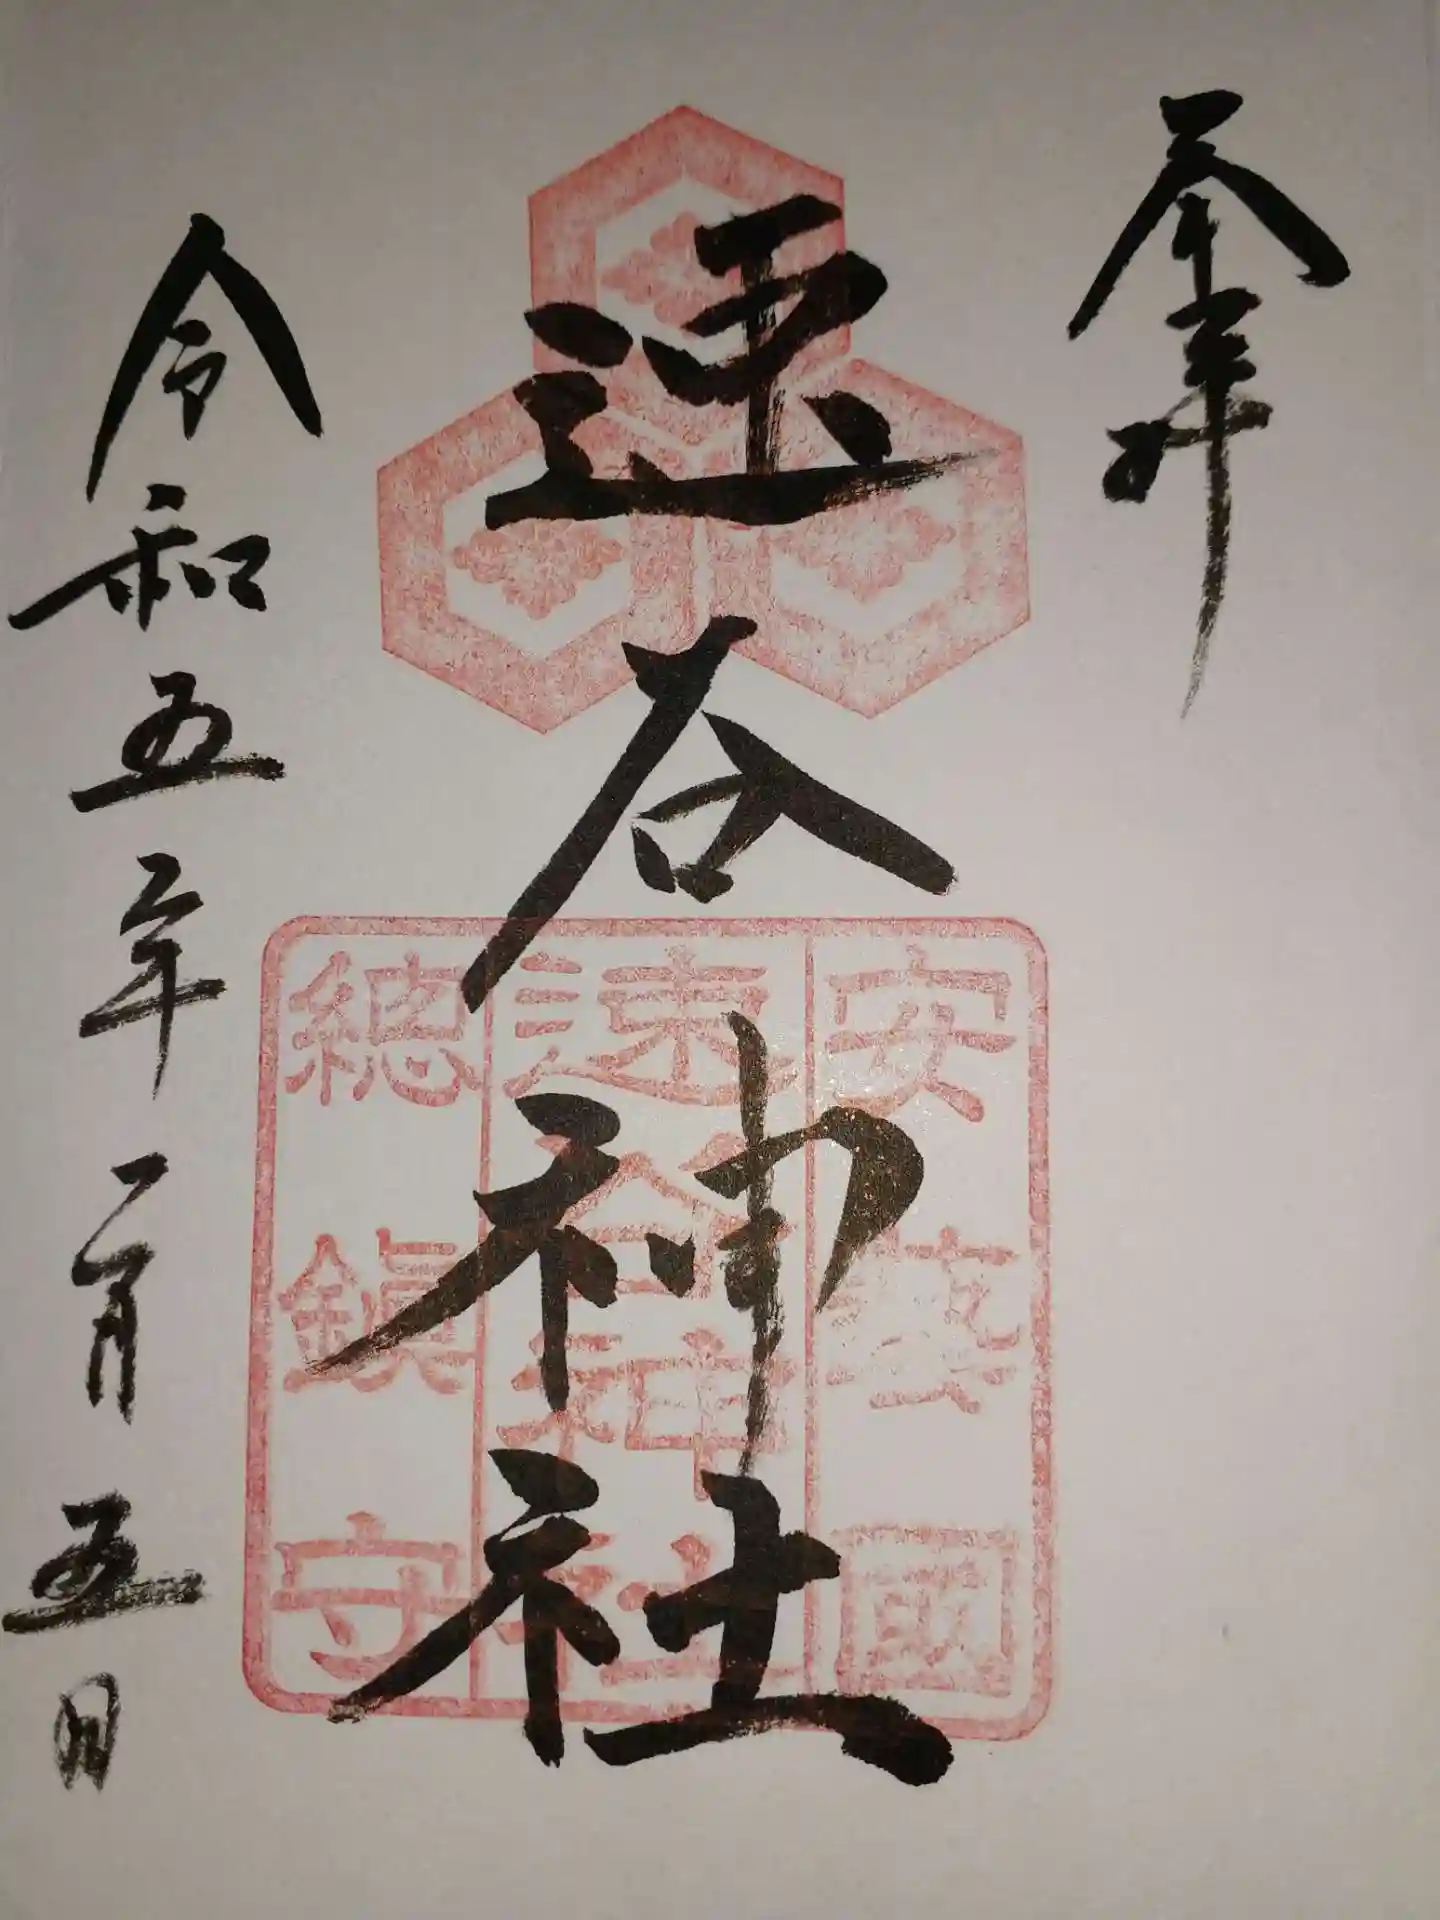 奉拝
速谷神社
安藝國
速谷神社
總鎮守
令和五年一月五日